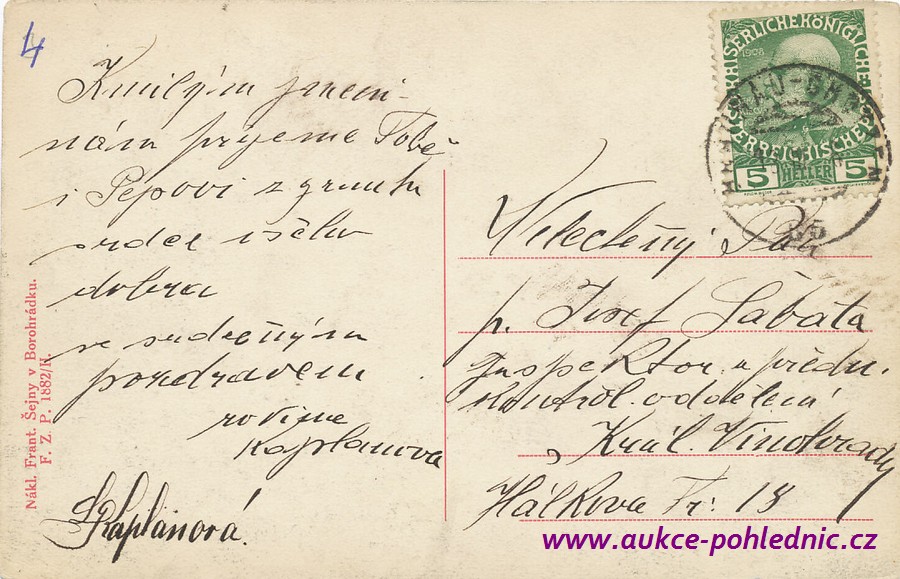 4
K milým jmeni-
nám přejeme Tobě
i Pepovi z gruntu
srdce všeho
dobra
se srdečným
pozdravem
rodina
Kaplanova
Kaplanová.
Nákl. Frant. Šejny v Borohrádku.
F. Z. P. 1882/II.
1908
5 HELLER 5
25
Velectěný Pán
p. Josef Sabata
Inspektor u předn.
kontrol. oddelení
Král. Vinohrady
Hálkova Tř: 18
www.aukce-pohlednic.cz